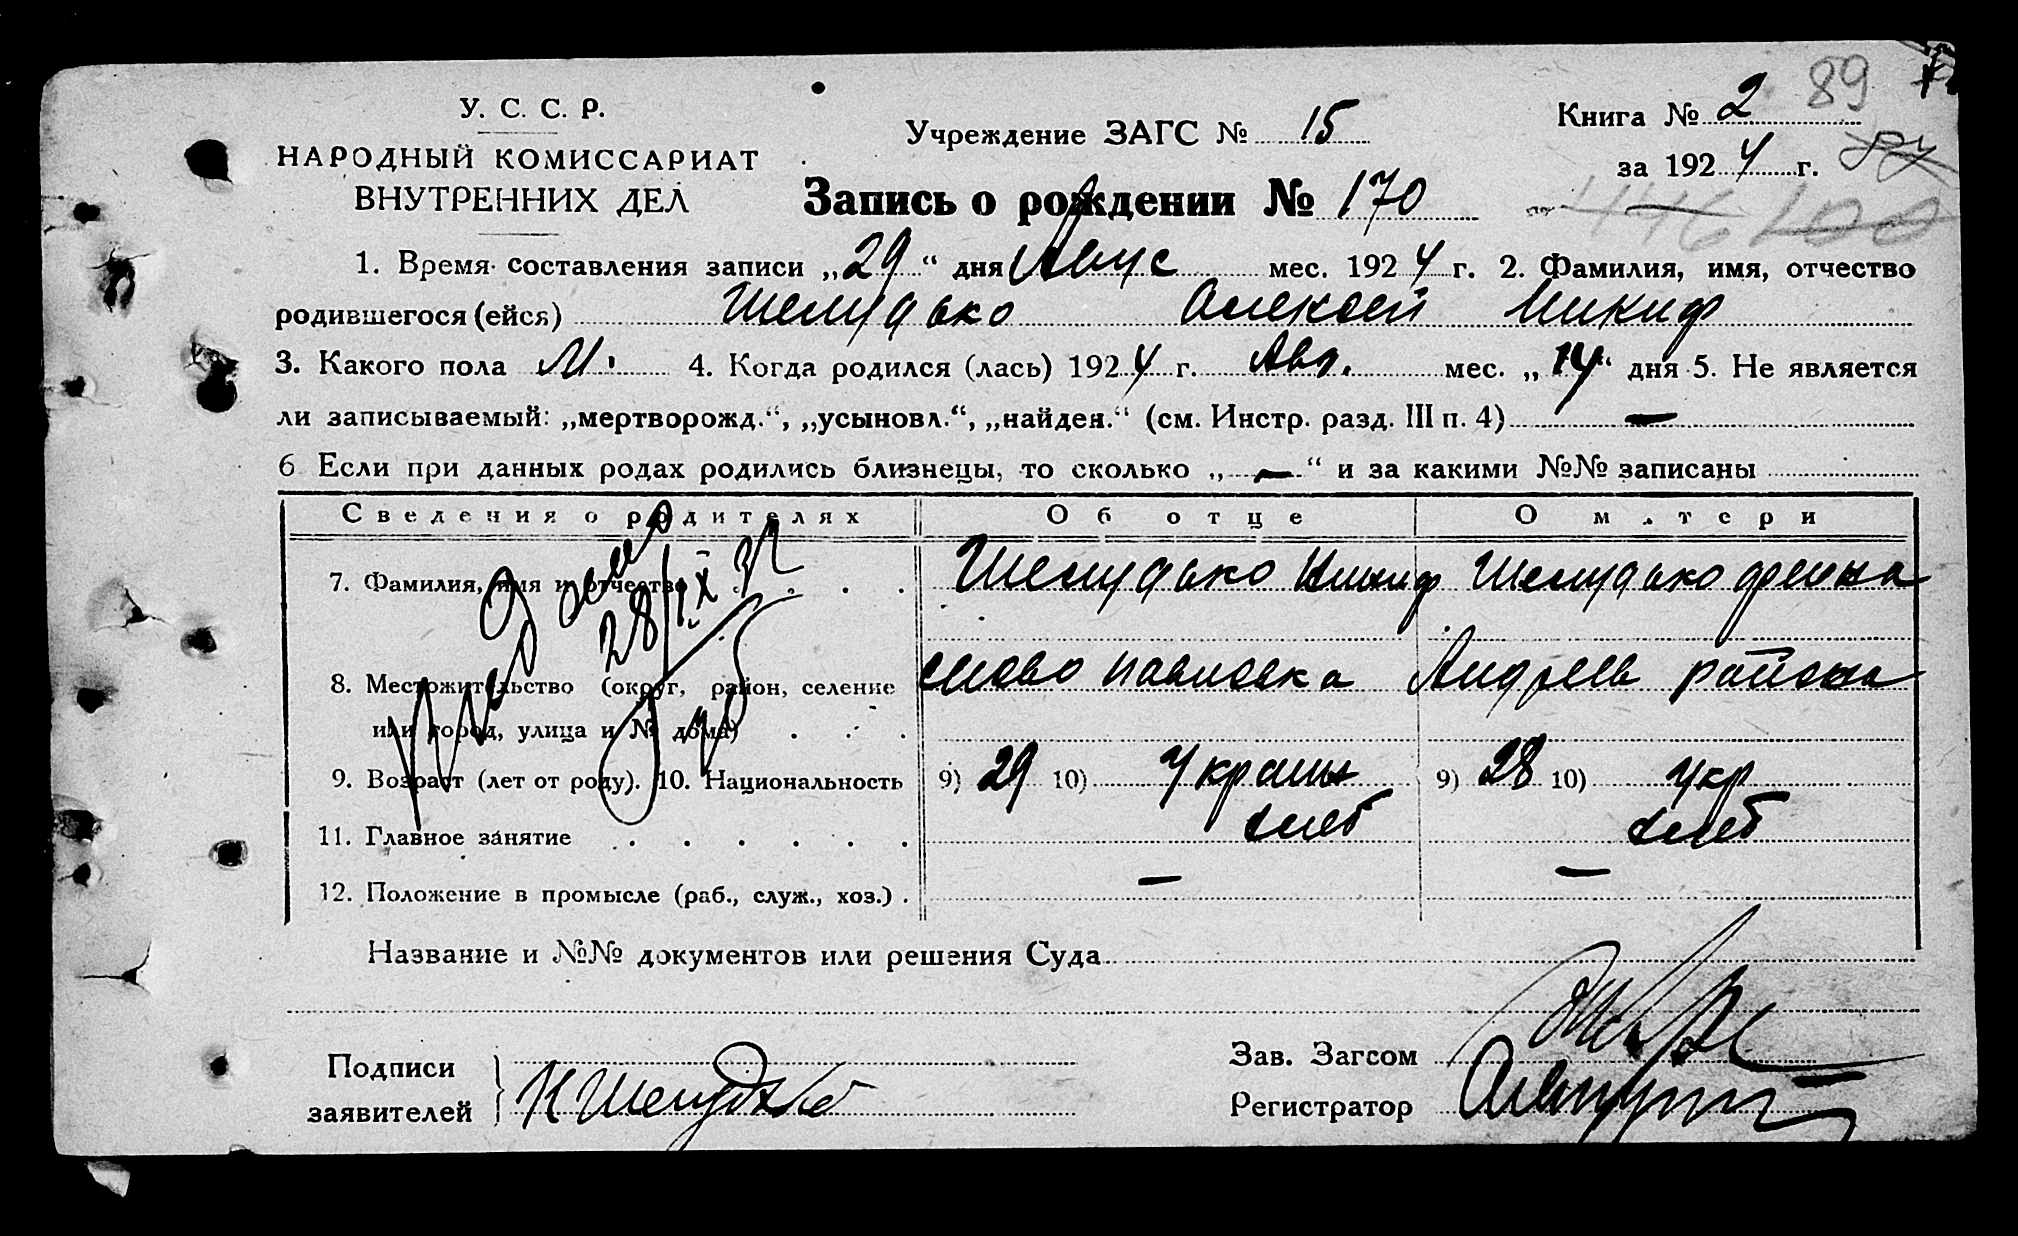 89
У. С. С. Р.
НАРОДНЫЙ КОМИССАРИАТ
ВНУТРЕННИХ ДЕЛ
Учреждение ЗАГС № 15
Книга № 2
за 1924 г.
Запись о рождении № 170
1. Время составления записи „29“ дня Авгус мес. 1924 г. 2. Фамилия, имя, отчество
родившегося (ейся) Шелудько Алексей Никиф
3. Какого пола М. 4. Когда родился (лась) 1924 г. Авг. мес. „14“ дня 5. Не является
ли записываемый: „мертворожд.“, „усыновл.“, „найден.“ (см. Инстр. разд. III п. 4) —
6 Если при данных родах родились близнецы, то сколько „—“ и за какими №№ записаны
Сведения о родителях Об отце О матери
7. Фамилия, имя и отчество Шелудько Никиф Шелудько
8. Местожительство (округ, район, селение Павловка Андреев района
или город, улица и № дома)
9. Возраст (лет от роду). 10. Национальность 9) 29 10) Украин 9) 28 10) Укр
11. Главное занятие хлеб хлеб
12. Положение в промысле (раб., служ., хоз.) — —
28/IX 32
Название и №№ документов или решения Суда
Подписи
заявителей Н Шелудько
Зав. Загсом
Регистратор